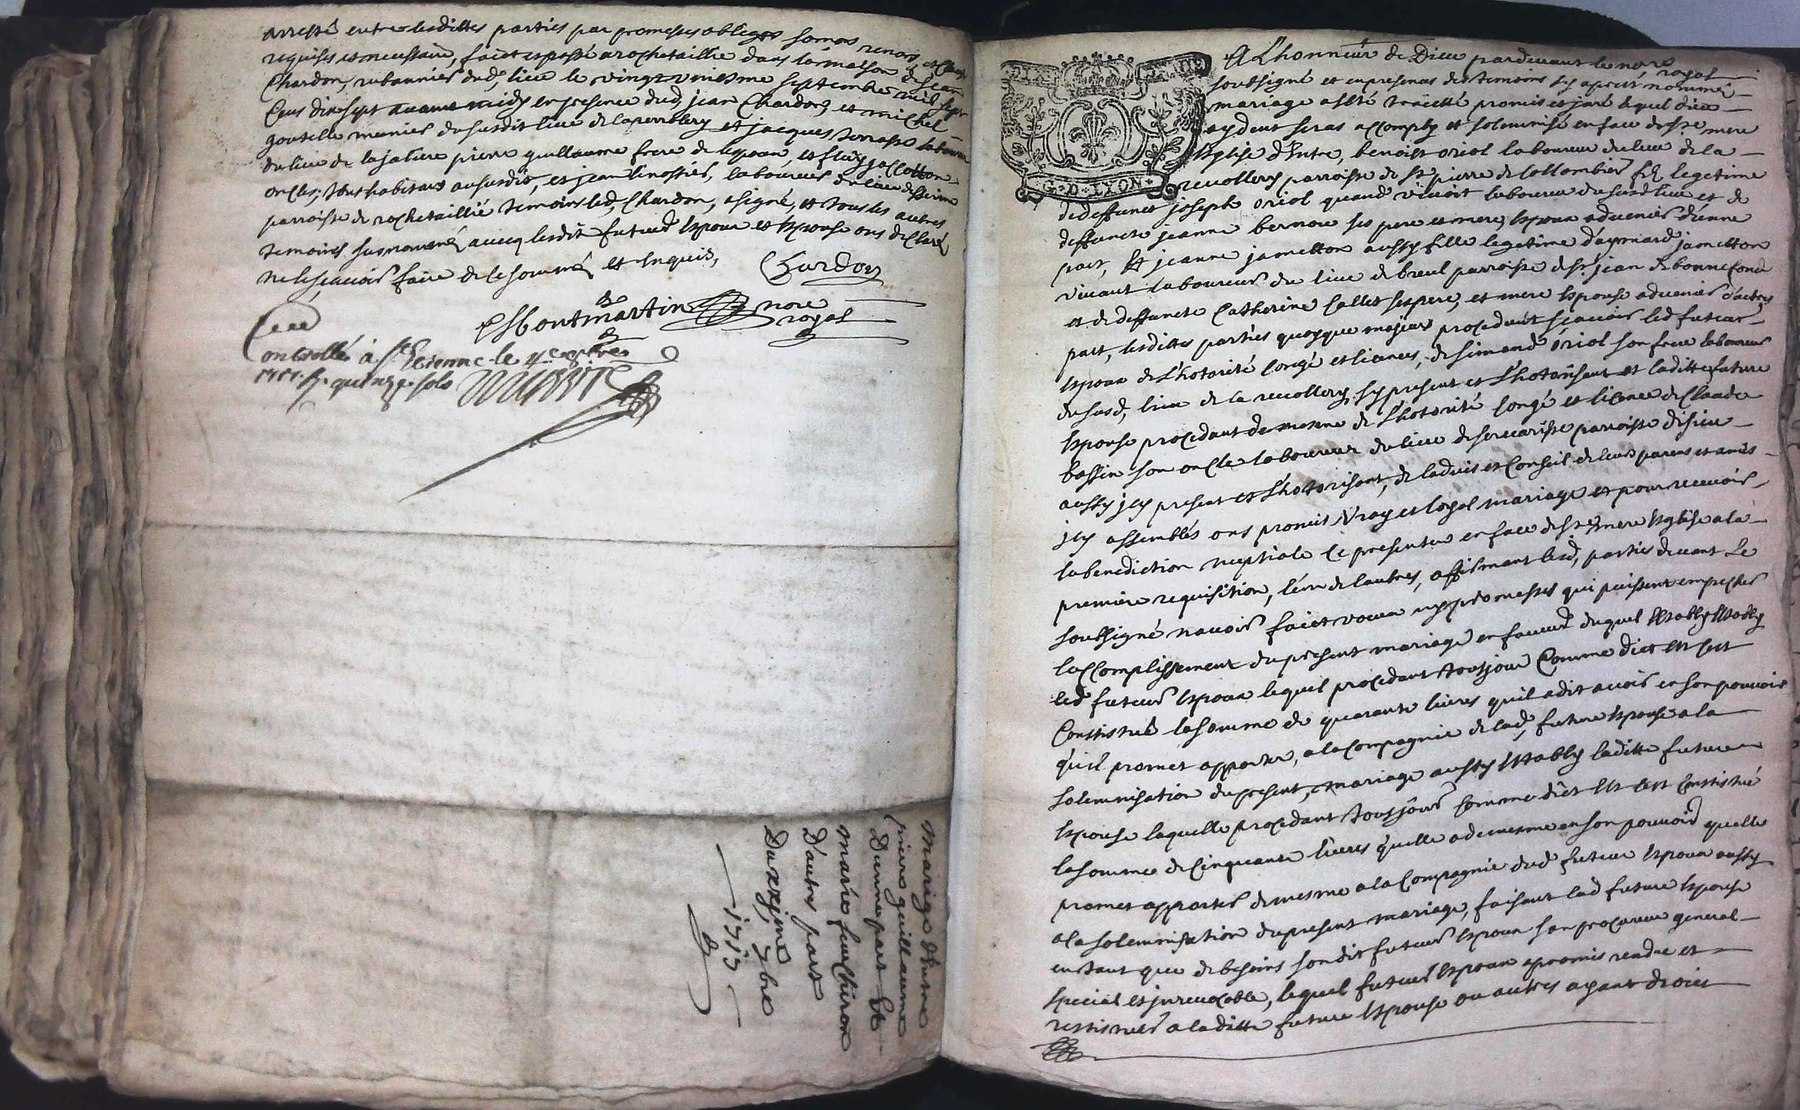 arresté entre lesdittes parties par promesses obligõns soms renõns et clauses
requises et necessaire, faict et passé a rochetaillie dans la maison de s.r jean
Chardon, rubannier dud, lieu le vingt uniesme septembre mil sept
Cens dix sept avant midy en presence dud, jean Chardon, et michel
goutelle munier du susdit lieu de la et jacques terrasse laboureur
du lieu de la jaliere pierre guillaume frere de lepoux, et
oncles, tous habitans aususdit, et jean linossier, laboureur du lieu de
parroisse de rochetaillié temoins led, Chardon, a signé, et tous les autres
temoins susnommés avecq lesdit futurs Espoux et Espouse ont declaré
ne le sçavoir faire de ce sommés et Enquis,
Chardon
Montmartin nore
royal
Controllé à St Etienne le
1717. R. quinze sols
mariage d'Entre
pierre guillaume
D'unne part Et
marie
D'autre part
Du xxj.me 7bre
1717
A Lhonneur de Dieu pardevant le nore royal
soussigné et en presence des temoins cy apres nommés
mariage a esté traicté promis et juré lequel dieu
aydent sera accomply et solemnisé en face de s.te mere
Esglise D'Entre, benoist oriol laboureur du lieu de la
parroisse de St pierre de Collombier fils legetime
de deffunct joseph oriol quand vivoit laboureur du susd lieu et de
deffuncte jeanne bernou ses pere et mere, Espoux advenir d'unne
part, Et jeanne jametton aussy fille legetime d'aymard jametton
vivant laboureur du lieu de breul parroisse de St jean de bonnefond
et de deffuncte Catherine Callet ses pere, et mere Espouse advenir d'autre
part, lesdittes parties quoyque majeurs procedant sçavoir led futeur
Espoux de L'hotorité Congé et licence, de Simond oriol son frere laboureur
du susd, lieu de la cy present et L'hotorisant et laditte future
Espouse procedant de mesme de L'hotorité Congé et licence de Claude
bassin son oncle laboureur du lieu de parroisse
aussy icy present et L'hotorisant, de ladvis et Conseil de leurs parens et amis
icy assemblés ont promis Vray et loyal mariage et pour recevoir
la benediction nuptiale Ce presenter en face de s.te mere Esglise a la
premiere requisition, l'un de l'autre, affirmant lesd, parties devant Le
soussigné n'avoir faict voeux ny promesses qui puissent empecher
laccomplissement du present mariage en faveur duquel Estably Estably
led futeur Espoux lequel procedant tousjour Comme dict Est sest
Constitué la somme de quarante livres quil a dit avoir en son pouvoir
quil promet apporter, a la Compagnie de lad, future Espouse a la
solemnisation du present, mariage aussy Estably laditte future
Espouse laquelle procedant tousjours Comme dict Est sest Constitué
la somme de Cinquante livres quelle a de mesme en son pouvoir quelle
promet apporter de mesme a la Compagnie dud futeur Espoux aussy
a la solemnisation du present mariage, faisant lad future Espouse
en tant que de besoins sondit futeur Espoux son procureur general
special et jrrevocable, lequel futeur Espoux a promis rendre et
restituer a laditte future Espouse ou autres ayant droict